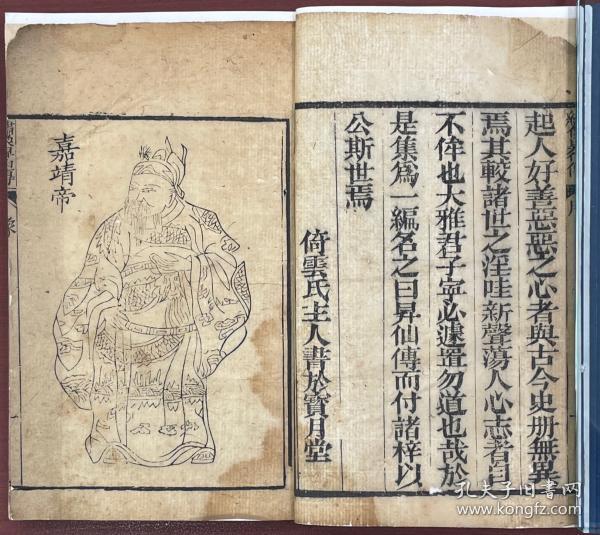 起人好善惡惡之心者與古今史册無異
焉其較諸世之淫哇新聲蕩人心志者自
不侔也大雅君子寧必遽置勿道也哉於
是集爲一編名之曰昇仙傳而付諸梓以
公斯世焉
倚雲氏主人書於寳月堂
嘉靖帝
孔夫子旧书网
www.kongfz.com